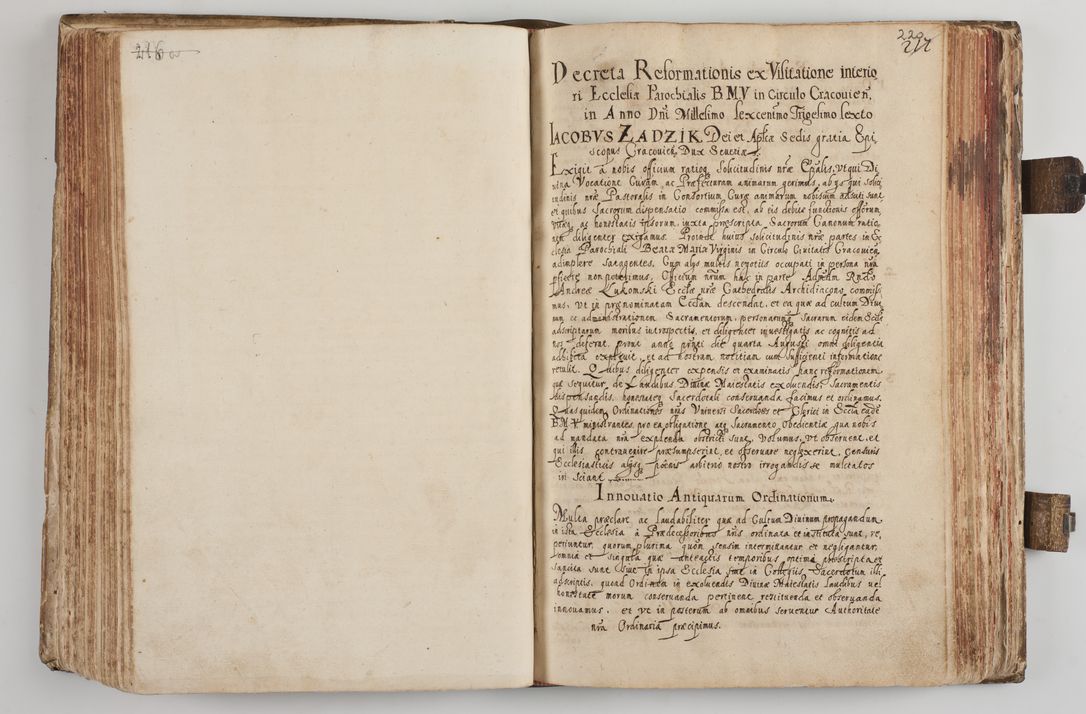 216
220
217
Decreta Reformationis ex Visitatione interio
ri Ecclesiæ Parochialis B.M.V in Circulo Cracouien̄.
in Anno Dn̄i Millesimo sexcen̄mo Trigesimo sexto
IACOBVS ZADZIK Dei et Aplicæ Sedis gratia Epi
scopus Cracouien̄ Dux Seueriæ
Exigit à nobis officium ratioq̃ Solicitudinis nr̄æ Ep̄alis, vt qui Di
uina Vocatione Curam ac Præfecturam animarum gerimus, ab ijs qui solici
tudinis nr̄æ Pastoralis in Consortium Curæ animarum nobiscum adsciti sunt
et quibus Sacrorum dispensatio commissa est, ab eis debitæ functionis
vitæq̃ ac honestatis ipsorum, iuxta præscripta Sacrorum Canonum ratio
nem diligenter exigamus. Proinde huius solicitudinis nr̄æ partes in Ec
clesia Parochiali Beatæ Mariæ Virginis in Circulo Ciuitatis Cracouien̄
adimplere satagentes, Cum alijs multis negotijs occupati in persona nr̄a
officere non potuimus, Officium nr̄um hac in parte Admodm Rn̄do
Andreæ Lukomski Eccl̄æ nr̄æ Cathedralis Archidiacono commisi
mus, vt in prænominatam Eccl̄am descendat, et ea quæ ad cultum Diui
num et administrationem Sacramentorum, personarumq̃ sacrarum eidem Eccl̄æ
adscriptarum moribus introspectis, et diligenter inuestigatis ac cognitis ad
nos deferat, prout anni prn̄tis die quarta Augusti omni diligentia
adhibita expleuit, et ad nostram notitiam cum sufficienti informatione
retulit. Quibus diligenter expensis et examinatis hanc reformationem
quæ sequitur de Laudibus Diuinæ Maiestatis exoluendis, Sacramentis
dispensandis, honestateq̃ Sacerdotali conseruanda facimus et ordinamus.
Quas quidem Ordinationes nr̄as Vniuersi Sacerdotes et Clerici in Eccl̄ia eadem
B.M.V. ministrantes, pro ea obligatione atq̃ Sacramento Obedientiæ qua nobis
ad mandata nr̄a explenda obstricti sunt, volumus, vt obseruent, et
qui illis contrauenire præsumpserint, et obseruare neglexerint, Censuris
Ecclesiasticis alijsq̃ pœnis arbitrio nostro irrogandis se mulctatos
iri sciant
Innouatio Antiquarum Ordinationum.
Multa præclare ac laudabiliter quæ ad Cultum Diuinum propagandum
in ista Ecclesia à Prædecessoribus nr̄is ordinata et instituta sunt, re,
periuntur, quorum plurima quon̄ sensim intermittantur et negligantur,
omnia et singula quæ anteactis temporibus optimè præscripta et
sancita sunt siue in ipsa Ecclesia siue in Collegijs Sacerdotum illi
adscriptis, quoad Ordinem in exoluendis Diuinæ Maiestatis laudibus uel
honestate morum conseruanda pertinent, restituenda et obseruanda
innouamus, et vt in posterum ab omnibus seruentur Authoritate
nr̄a Ordinaria præcipimus.